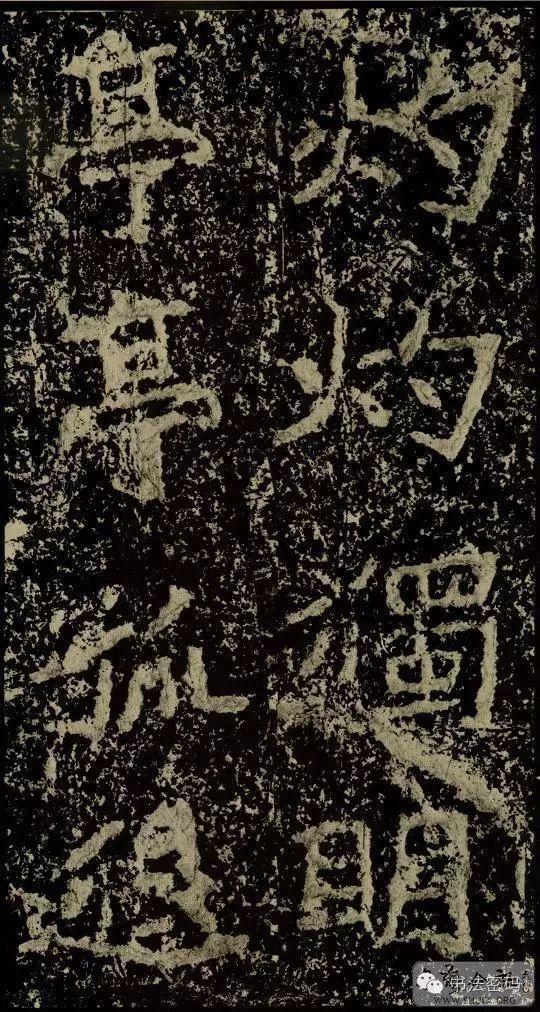 灼灼獨明
亭亭孤
书法密码
WWW.SHUFA.ORG